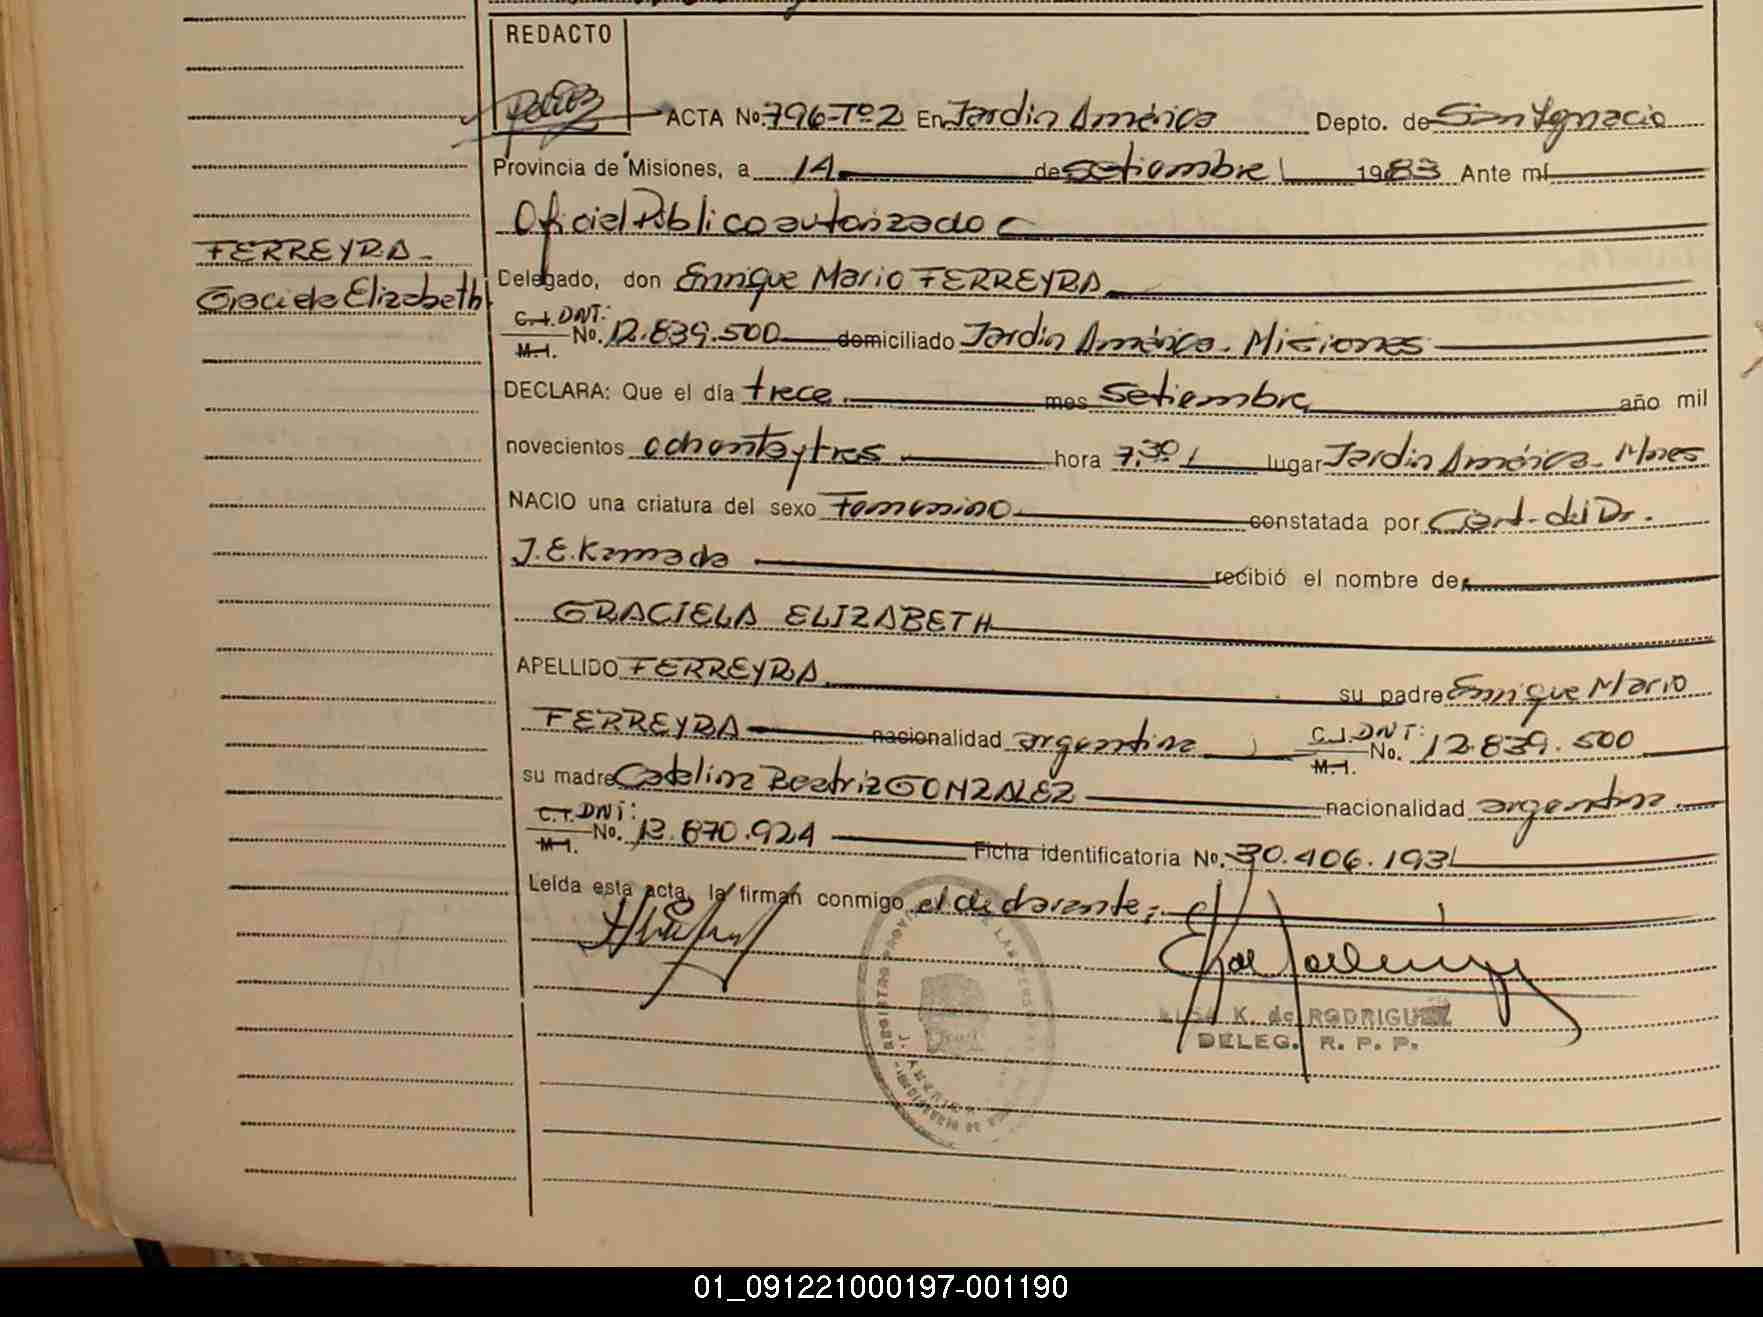 REDACTO
ACTA No. 796-Tº2 En Jardín América Depto. de San Ignacio
Provincia de Misiones, a 14 de setiembre 1983 Ante mí
Oficial Público autorizado
FERREYRA-
Graciela Elizabeth
Delegado, don Enrique Mario FERREYRA
C.I. DNI: M.I. No. 12.839.500 domiciliado Jardín América. Misiones
DECLARA: Que el día trece mes setiembre año mil
novecientos ochenta y tres hora 7,30 lugar Jardín América- Mnes
NACIO una criatura del sexo Femenino constatada por Cert. del Dr.
J.E. Kamada recibió el nombre de
GRACIELA ELIZABETH
APELLIDO FERREYRA su padre Enrique Mario
FERREYRA nacionalidad argentina C.I. DNI: M.I. No. 12.839.500
su madre Catalina Beatriz GONZALEZ nacionalidad argentina
C.I. DNI: M.I. No. 13.870.924 Ficha identificatoria No. 30.406.193
Leída esta acta, la firman conmigo el declarante;
ELSA K. de RODRIGUEZ
DELEG. R. P. P.
01_091221000197-001190